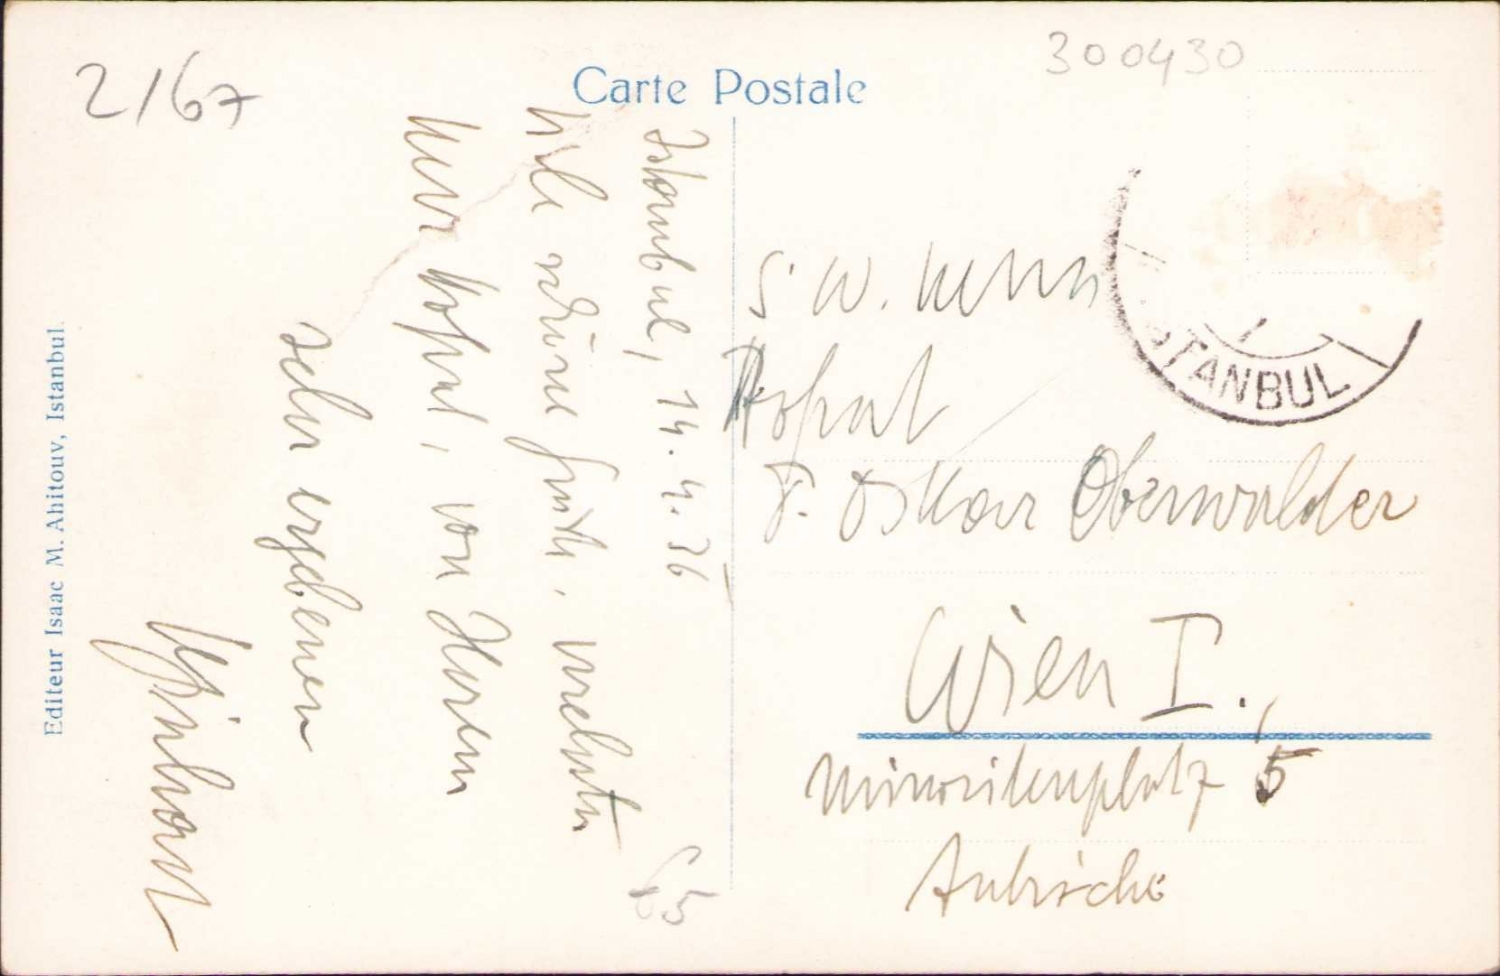 2/67
300430
Carte Postale
Istambul, 14. 4. 36
Viele schöne Grüße, verehrter
Herr Hofrat, von Ihrem
sehr ergebenen
S. H. Herrn
Hofrat
D. Oskar Oberwalder
Wien I.,
Minoritenplatz 5
Autriche
65
ISTANBUL
Editeur Isaac M. Ahitouv, Istanbul.